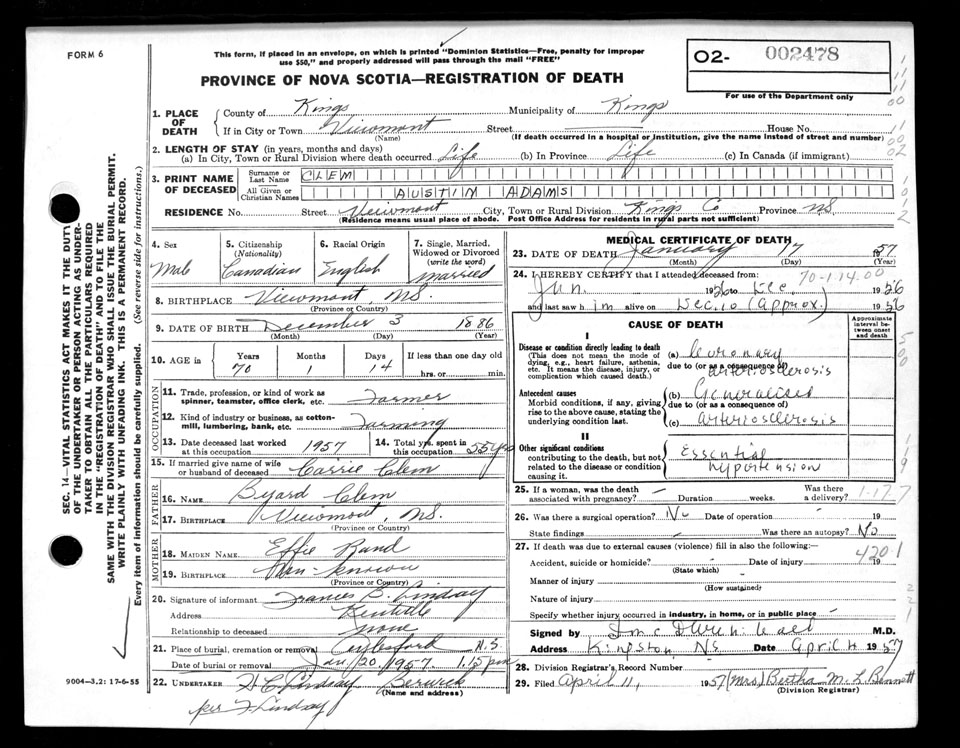 FORM 6
This form, if placed in an envelope, on which is printed "Dominion Statistics—Free, penalty for improper
use $50," and properly addressed will pass through the mail "FREE"
02- 002478
For use of the Department only
PROVINCE OF NOVA SCOTIA—REGISTRATION OF DEATH
1. PLACE OF DEATH
County of Kings Municipality of Kings
If in City or Town Viewmont Street — House No.
(Name) (If death occurred in a hospital or institution, give the name instead of street and number)
2. LENGTH OF STAY (in years, months and days)
(a) In City, Town or Rural Division where death occurred Life (b) In Province Life (c) In Canada (if immigrant)
3. PRINT NAME OF DECEASED
Surname or Last Name CLEM
All Given or Christian Names AUSTIN ADAMS
RESIDENCE No. Street Viewmont City, Town or Rural Division Kings Co Province NS.
(Residence means usual place of abode. Post Office Address for residents in rural parts not sufficient)
4. Sex Male
5. Citizenship (Nationality) Canadian
6. Racial Origin English
7. Single, Married, Widowed or Divorced (write the word) married
8. BIRTHPLACE Viewmont, NS.
(Province or Country)
9. DATE OF BIRTH December 3 1886
(Month) (Day) (Year)
10. AGE in Years 70 Months 1 Days 14 If less than one day old hrs. or min.
OCCUPATION
11. Trade, profession, or kind of work as spinner, teamster, office clerk, etc. Farmer
12. Kind of industry or business, as cotton-mill, lumbering, bank, etc. Farming
13. Date deceased last worked at this occupation 1957
14. Total yrs. spent in this occupation 55 yrs
15. If married give name of wife or husband of deceased Carrie Clem
FATHER
16. NAME Byard Clem
17. BIRTHPLACE Viewmont, NS.
(Province or Country)
MOTHER
18. MAIDEN NAME Effie Rand
19. BIRTHPLACE Un-known
(Province or Country)
20. Signature of informant Frances B. Lindsay
Address Kentville
Relationship to deceased none
21. Place of burial, cremation or removal Aylesford N.S.
Date of burial or removal Jan 20, 1957. 1.15 pm
22. UNDERTAKER H C Lindsay Berwick
(Name and address)
per F Lindsay
MEDICAL CERTIFICATE OF DEATH
23. DATE OF DEATH January 17 1957
(Month) (Day) (Year)
70-1.14.00
24. I HEREBY CERTIFY that I attended deceased from:
Jan. 1956 to Dec 1956
and last saw him alive on Dec. 10 (Approx.) 1956
CAUSE OF DEATH
Approximate interval between onset and death
I
Disease or condition directly leading to death
(This does not mean the mode of dying, e.g., heart failure, asthenia, etc. It means the disease, injury, or complication which caused death.)
(a) Coronary arteriosclerosis
due to (or as a consequence of)
Antecedent causes
Morbid conditions, if any, giving rise to the above cause, stating the underlying condition last.
(b) Generalized
due to (or as a consequence of)
(c) arteriosclerosis
II
Other significant conditions
contributing to the death, but not related to the disease or condition causing it.
Essential hypertension
25. If a woman, was the death associated with pregnancy? — Duration weeks. Was there a delivery?
1-17.7
26. Was there a surgical operation? No Date of operation — 19
State findings — Was there an autopsy? No
27. If death was due to external causes (violence) fill in also the following:—
420.1
Accident, suicide or homicide? Date of injury 19
(State which)
Manner of injury
(How sustained)
Nature of injury
Specify whether injury occurred in industry, in home, or in public place
Signed by M.D.
Address Kingston, NS Date April 4 1957
28. Division Registrar's Record Number
29. Filed April 11, 1957 (Mrs) Bertha M. L Bennett
(Division Registrar)
SEC. 14—VITAL STATISTICS ACT MAKES IT THE DUTY
OF THE UNDERTAKER OR PERSON ACTING AS UNDER-
TAKER TO OBTAIN ALL THE PARTICULARS REQUIRED
IN THE "REGISTRATION OF DEATH" AND TO FILE THE
SAME WITH THE DIVISION REGISTRAR WHO SHALL ISSUE THE BURIAL PERMIT.
WRITE PLAINLY WITH UNFADING INK. THIS IS A PERMANENT RECORD.
Every item of information should be carefully supplied. (See reverse side for instructions.)
9004—3.2: 17-6-55